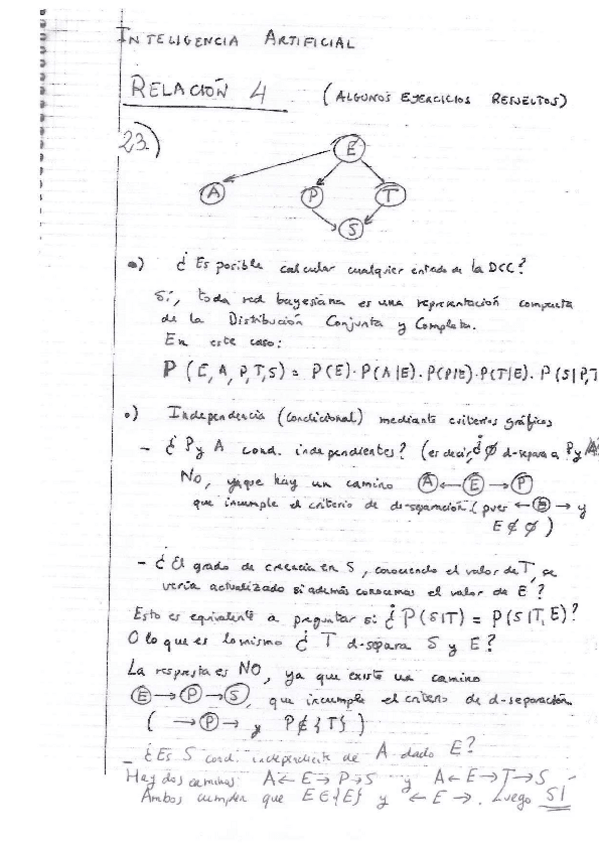 INTELIGENCIA ARTIFICIAL
RELACIÓN 4 (ALGUNOS EJERCICIOS RESUELTOS)
23)
E
A P T
S
a) ¿Es posible calcular cualquier entrada de la DCC?
Sí, toda red bayesiana es una representación compacta
de la Distribución Conjunta y Completa.
En este caso:
P(E, A, P, T, S) = P(E)·P(A|E)·P(P|E)·P(T|E)·P(S|P,T
•) Independencia (condicional) mediante criterios gráficos
- ¿P y A cond. independientes? (es decir, ¿∅ d-separa a P y A
No, ya que hay un camino A ← E → P
que incumple el criterio de d-separación (pues ← E → y
E ∉ ∅)
- ¿El grado de creencia en S, conociendo el valor de T, se
vería actualizado si además conocemos el valor de E?
Esto es equivalente a preguntar si ¿P(S|T) = P(S|T,E)?
O lo que es lo mismo ¿T d-separa S y E?
La respuesta es NO, ya que existe un camino
E → P → S, que incumple el criterio de d-separación.
( → P → y P ∉ {T} )
- ¿Es S cond. independiente de A dado E?
Hay dos caminos A ← E → P → S y A ← E → T → S
Ambos cumplen que E ∈ {E} y ← E →. Luego SÍ